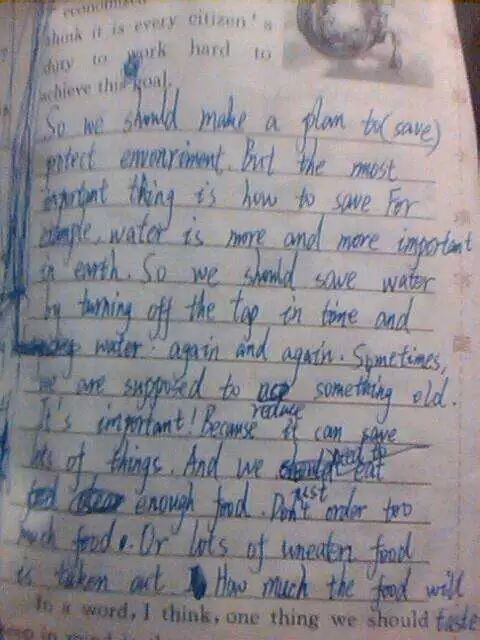 economised
think it is every citizen's
duty to work hard to
achieve this goal.
So we should make a plan to (save)
potect envonriment. But the most
important thing is how to save For
example, water is more and more important
in earth. So we should save water
by turning off the tap in time and
water again and again. Sometimes,
we are supposed to something old.
reduce
It's important! Because it can save
lots of things. And we need to eat
just
enough food. Don't order too
much food. Or lots of uneaten food
is taken out How much the food will
In a word, I think, one thing we should taste